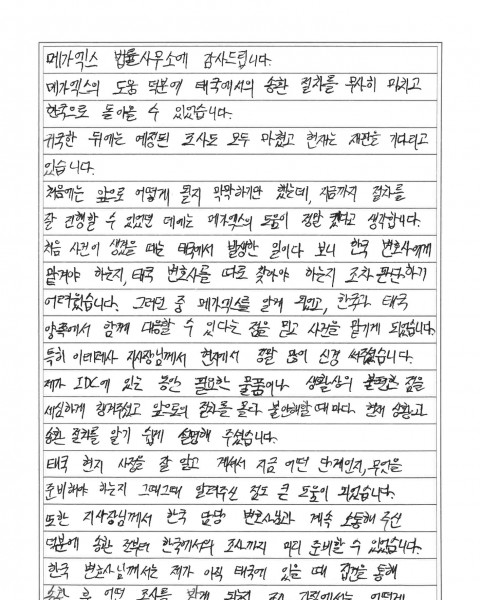 메가엑스 법률사무소에 감사드립니다.
메가엑스의 도움 덕분에 태국에서의 송환 절차를 무사히 마치고
한국으로 돌아올 수 있었습니다.
귀국한 뒤에는 예정된 조사도 모두 마쳤고 현재는 재판을 기다리고
있습니다.
처음에는 앞으로 어떻게 될지 막막하기만 했는데, 지금까지 절차를
잘 진행할 수 있었던 데에는 메가엑스의 도움이 정말 컸다고 생각합니다.
처음 사건이 생겼을 때는 태국에서 발생한 일이다 보니 한국 변호사에게
맡겨야 하는지, 태국 변호사를 따로 찾아야 하는지 조차 판단하기
어려웠습니다. 그러던 중 메가엑스를 알게 되었고, 한국과 태국
양쪽에서 함께 대응할 수 있다는 점을 믿고 사건을 맡기게 되었습니다.
특히 지사장님께서 현지에서 정말 많이 신경 써주셨습니다.
제가 IDC에 있는 동안 필요한 물품이나 생활상의 불편한 점을
세심하게 챙겨주셨고 앞으로의 절차를 몰라 불안해할 때마다 현재 상황과
송환 절차를 알기 쉽게 설명해 주셨습니다.
태국 현지 사정을 잘 알고 계셔서 지금 어떤 단계인지, 무엇을
준비해야 하는지 그때그때 알려주신 점도 큰 도움이 되었습니다.
또한 지사장님께서 한국 담당 변호사님과 계속 소통해 주신
덕분에 송환 전부터 한국에서의 조사까지 미리 준비할 수 있었습니다.
한국 변호사님께서는 제가 아직 태국에 있을 때 접견을 통해
송환 후 어떤 조사를 받게 어떻게